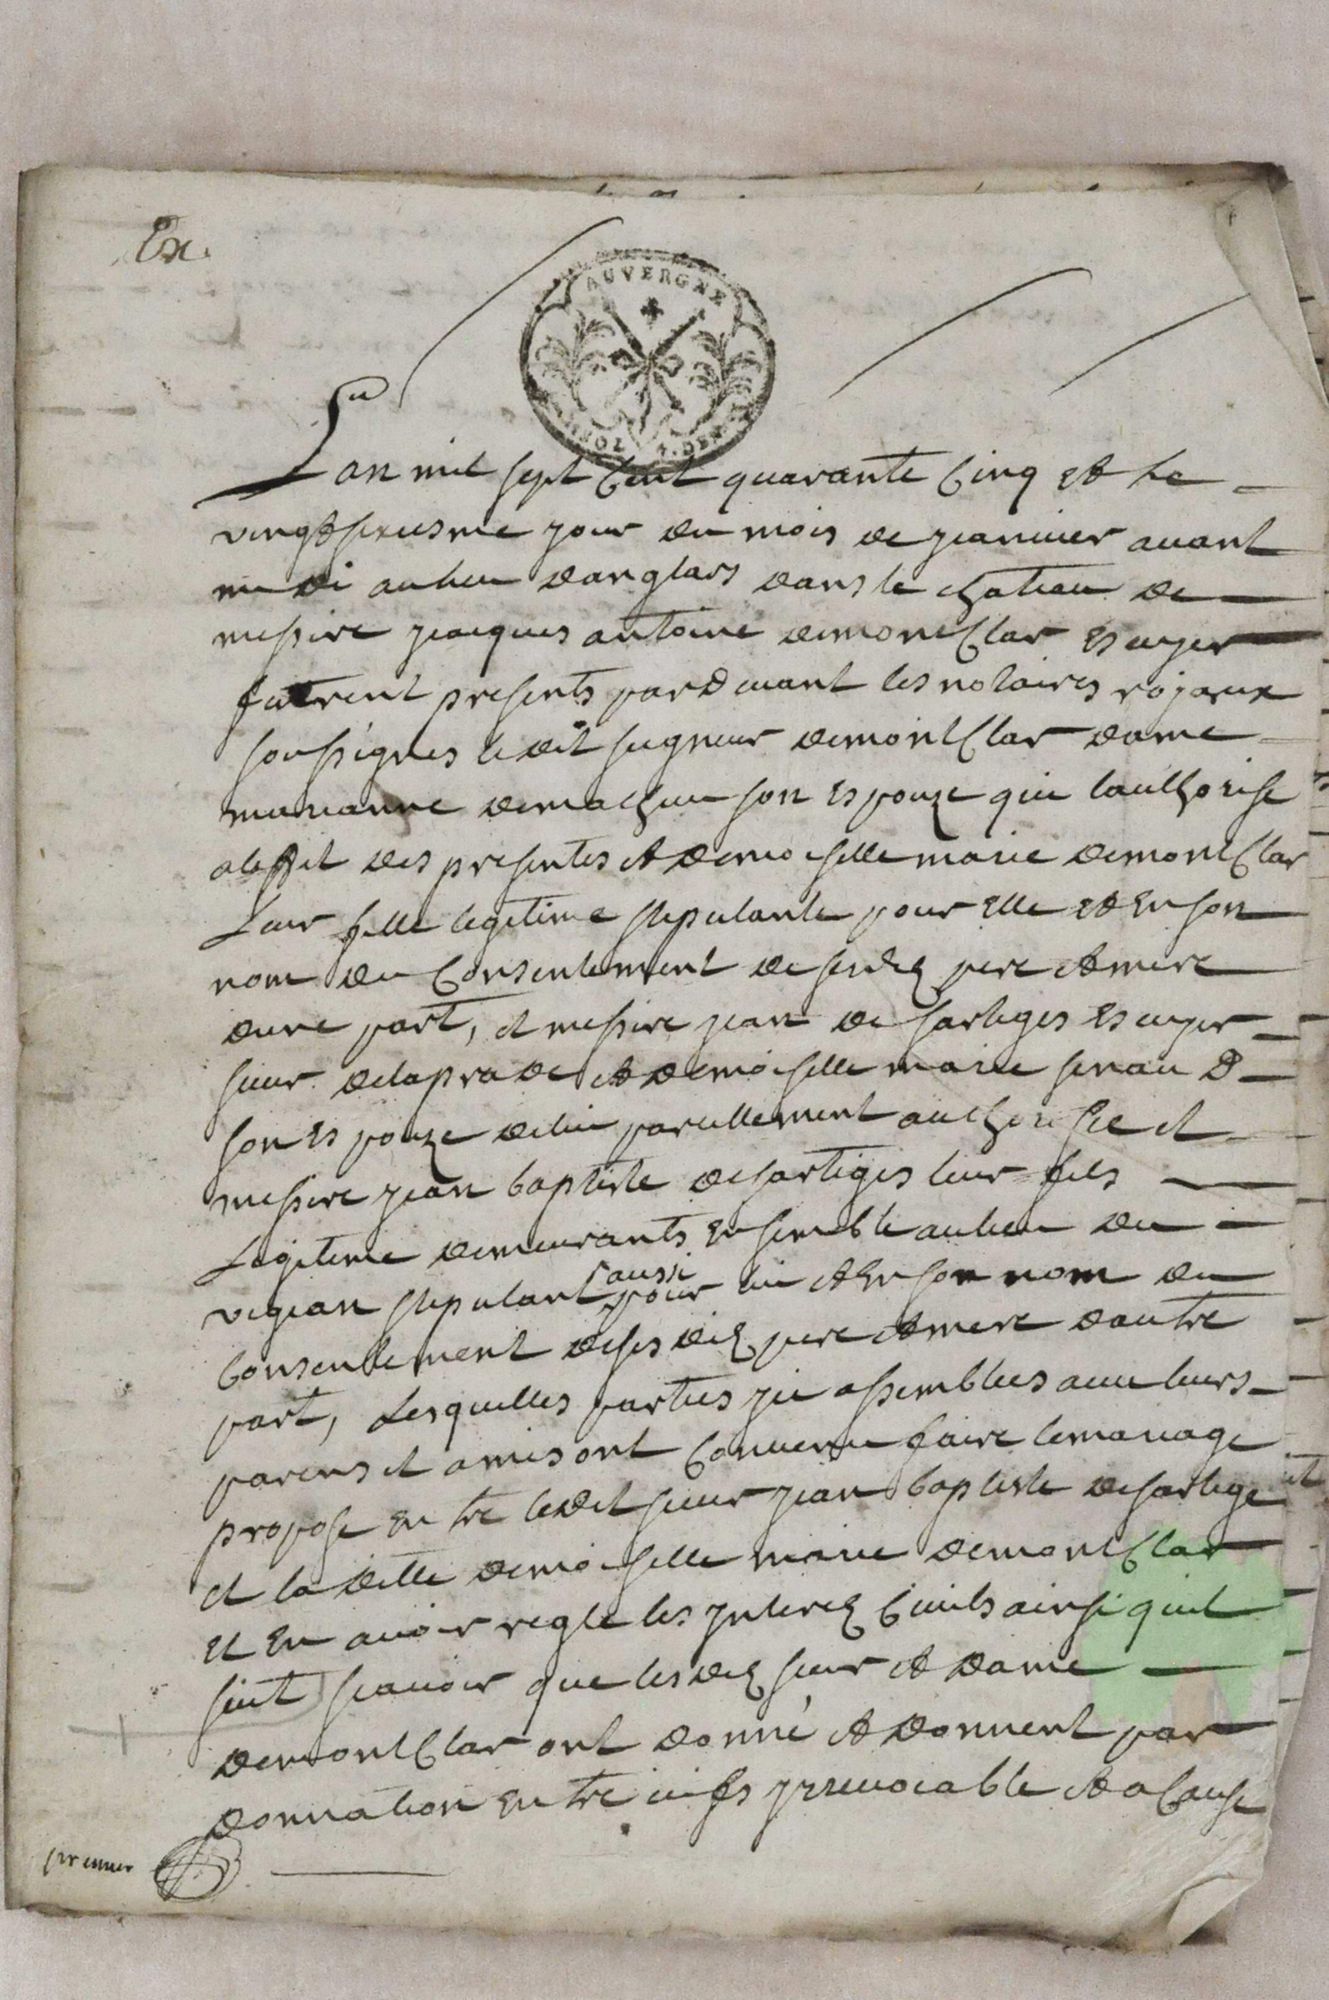 Ex.
AUVERGNE
Lan mil sept Cent quarante Cinq et le
vingt sixiesme jour du mois de jeanvier avant
midi au lieu danglars dans le chateau de
messire jeacques antoine demontClar Escuyer
furent presents pardevant les notaires rojaux
soussignes ledit seigneur demontClar dame
marianne son Espouze qui lauthorise
aleffet des presentes et demoiselle marie demontClar
Leur fille legitime stipulante pour Elle et En son
nom du Consentement de sesdz pere et mere
dune part, et messire jean de sartiges Escuyer
sieur delaprade et demoiselle marie
son Espouze delui pareillement authorisee et
messire jean baptiste desartiges leur fils
Legitime demeurants Ensemble au lieu du
aussi
vigean stipulant pour lui et En son nom du
Consentement desesdz pere et mere dautre
part, Lesquelles parties jci assemblees avec leurs
parens et amis ont Convenu faire le mariage
propose Entre ledit sieur jean baptiste desartige
et laditte demoiselle marie demontClar
Et En avoir regle les jnterez Civils ainsi quil
suit scavoir que lesdz sieur et dame
demontClar ont donné et donnent par
donnation Entre vifs jrrevocable et a Cause
premier